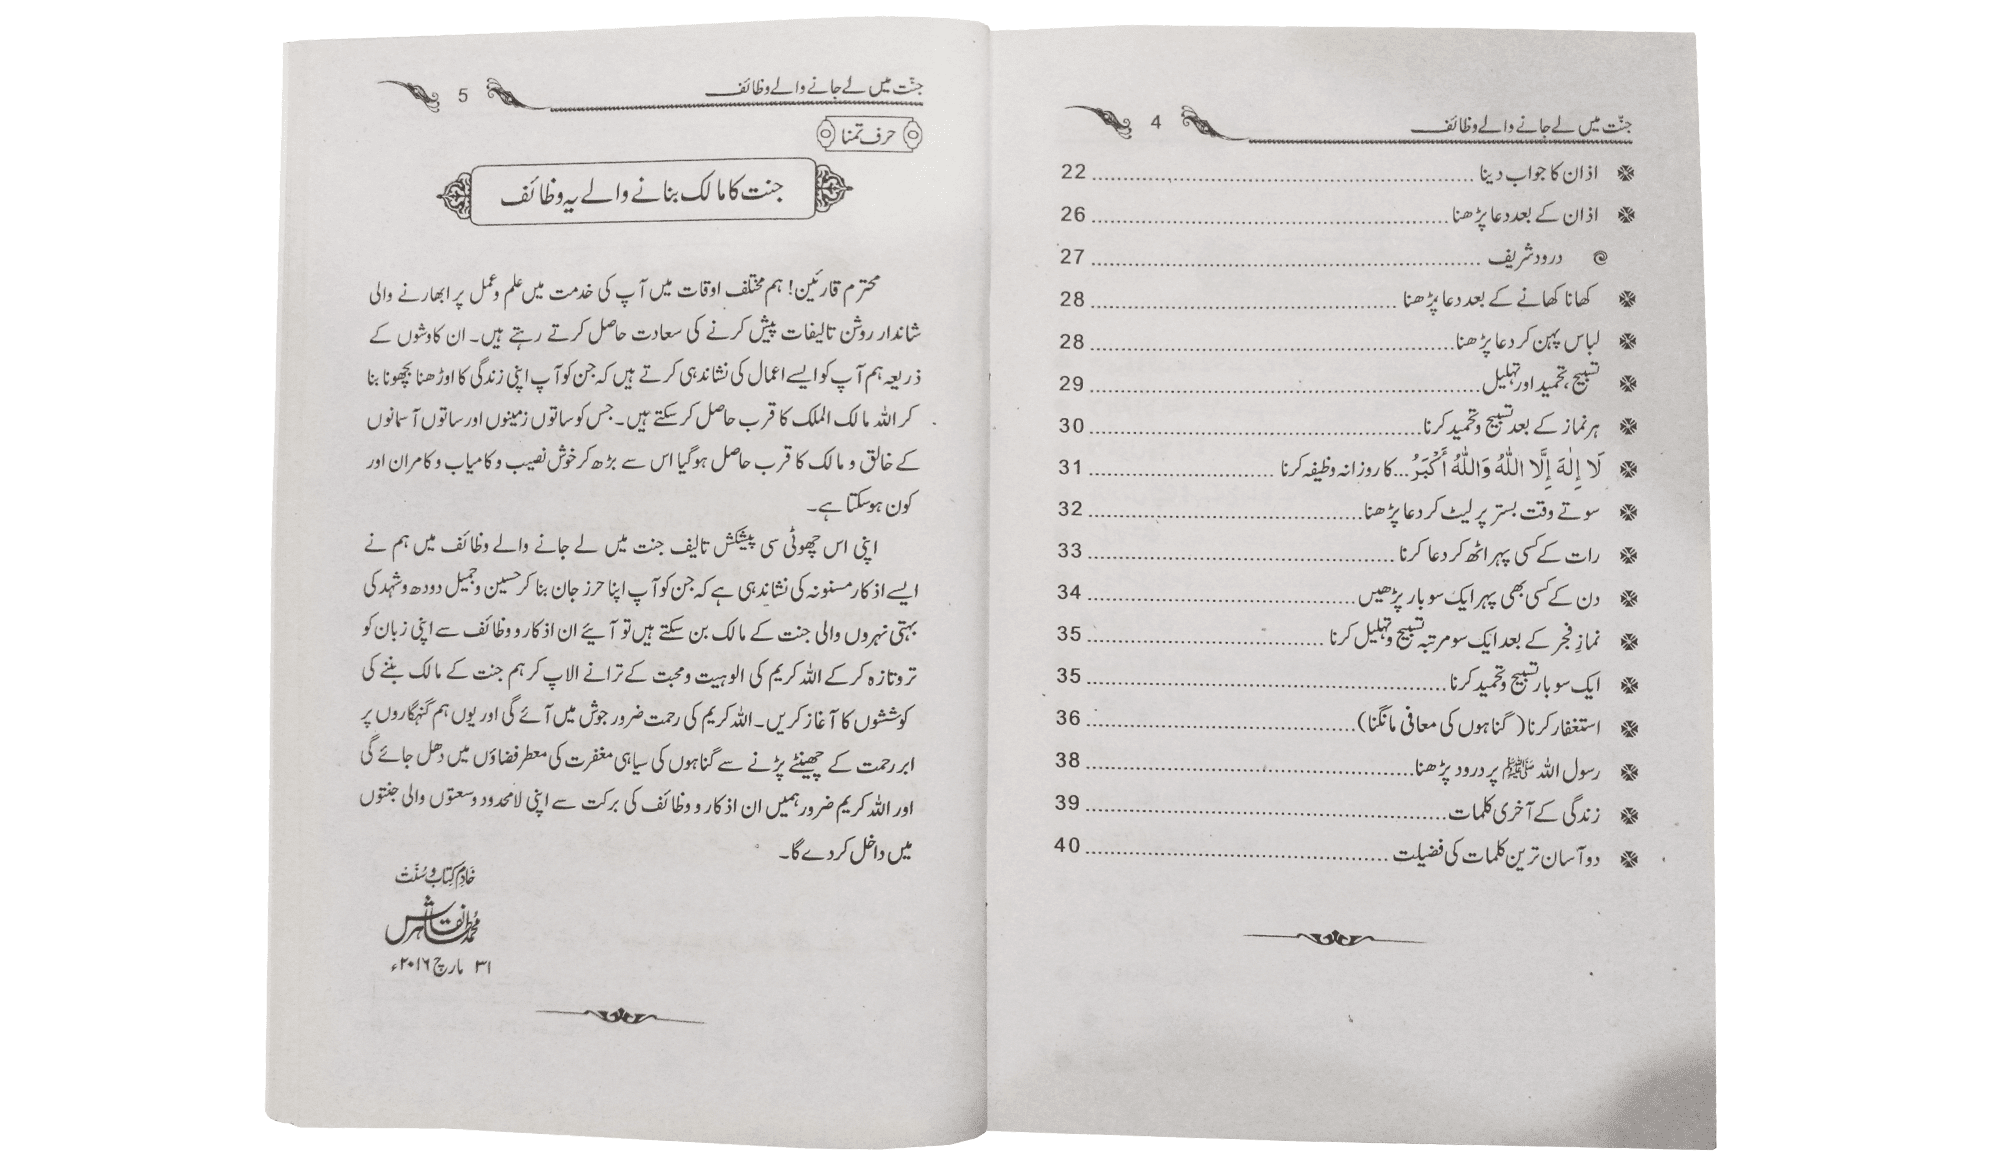 جنّت میں لے جانے والے وظائف 4
اذان کا جواب دینا 22
اذان کے بعد دعا پڑھنا 26
درود شریف 27
کھانا کھانے کے بعد دعا پڑھنا 28
لباس پہن کر دعا پڑھنا 28
تسبیح، تحمید اور تہلیل 29
ہر نماز کے بعد تسبیح و تحمید کرنا 30
لَا إِلٰهَ إِلَّا اللّٰهُ وَاللّٰهُ أَكْبَرُ... کا روزانہ وظیفہ کرنا 31
سوتے وقت بستر پر لیٹ کر دعا پڑھنا 32
رات کے کسی پہر اٹھ کر دعا کرنا 33
دن کے کسی بھی پہر ایک سو بار پڑھیں 34
نمازِ فجر کے بعد ایک سو مرتبہ تسبیح و تہلیل کرنا 35
ایک سو بار تسبیح و تحمید کرنا 35
استغفار کرنا (گناہوں کی معافی مانگنا) 36
رسول اللہ ﷺ پر درود پڑھنا 38
زندگی کے آخری کلمات 39
دو آسان ترین کلمات کی فضیلت 40
جنّت میں لے جانے والے وظائف 5
حرف تمنا
جنت کا مالک بنانے والے یہ وظائف
محترم قارئین! ہم مختلف اوقات میں آپ کی خدمت میں علم و عمل پر ابھارنے والی
شاندار روشن تالیفات پیش کرنے کی سعادت حاصل کرتے رہتے ہیں۔ ان کاوشوں کے
ذریعہ ہم آپ کو ایسے اعمال کی نشاندہی کرتے ہیں کہ جن کو آپ اپنی زندگی کا اوڑھنا بچھونا بنا
کر اللہ مالک الملک کا قرب حاصل کر سکتے ہیں۔ جس کو ساتوں زمینوں اور ساتوں آسمانوں
کے خالق و مالک کا قرب حاصل ہو گیا اس سے بڑھ کر خوش نصیب و کامیاب و کامران اور
کون ہو سکتا ہے۔
اپنی اس چھوٹی سی پیشکش تالیف جنت میں لے جانے والے وظائف میں ہم نے
ایسے اذکار مسنونہ کی نشاندہی ہے کہ جن کو آپ اپنا حرز جان بنا کر حسین و جمیل دودھ و شہد کی
بہتی نہروں والی جنت کے مالک بن سکتے ہیں تو آیئے ان اذکار و وظائف سے اپنی زبان کو
تروتازہ کر کے اللہ کریم کی الوہیت و محبت کے ترانے الاپ کر ہم جنت کے مالک بننے کی
کوششوں کا آغاز کریں۔ اللہ کریم کی رحمت ضرور جوش میں آئے گی اور یوں ہم گنہگاروں پر
ابر رحمت کے چھینٹے پڑنے سے گناہوں کی سیاہی مغفرت کی معطر فضاؤں میں دھل جائے گی
اور اللہ کریم ضرور ہمیں ان اذکار و وظائف کی برکت سے اپنی لامحدود وسعتوں والی جنتوں
میں داخل کر دے گا۔
خادم کتاب و سنّت
محمد طاہر نقاش
۳۱ مارچ ۲۰۱۶ء